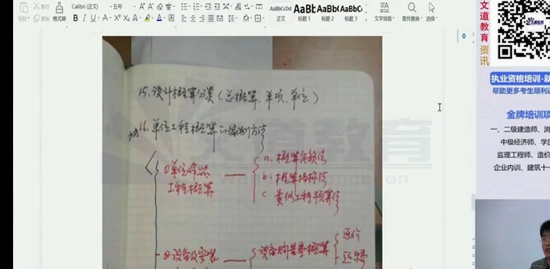 Calibri (正文)
五号
格式刷
粘贴
AaBbCcDd
AaBb
AaBb(
AaBbC
正文
标题 1
标题 2
标题 3
文字排版
查找替换
选择
15、设计概算分类(总概算、单项、单位)
16、单位工程概算的编制方法
①单位建筑
工程概算
a、概算定额法
b、概算指标法
c、类似工程预算法
②设备及安装
设备购置费概算
原价
运杂费
文道教育
文道教育
资讯
执业资格培训-
帮助更多考生顺利
金牌培训项
一、二级建造师、消
中级经济师、学历
监理工程师、造价
企业内训、建筑十